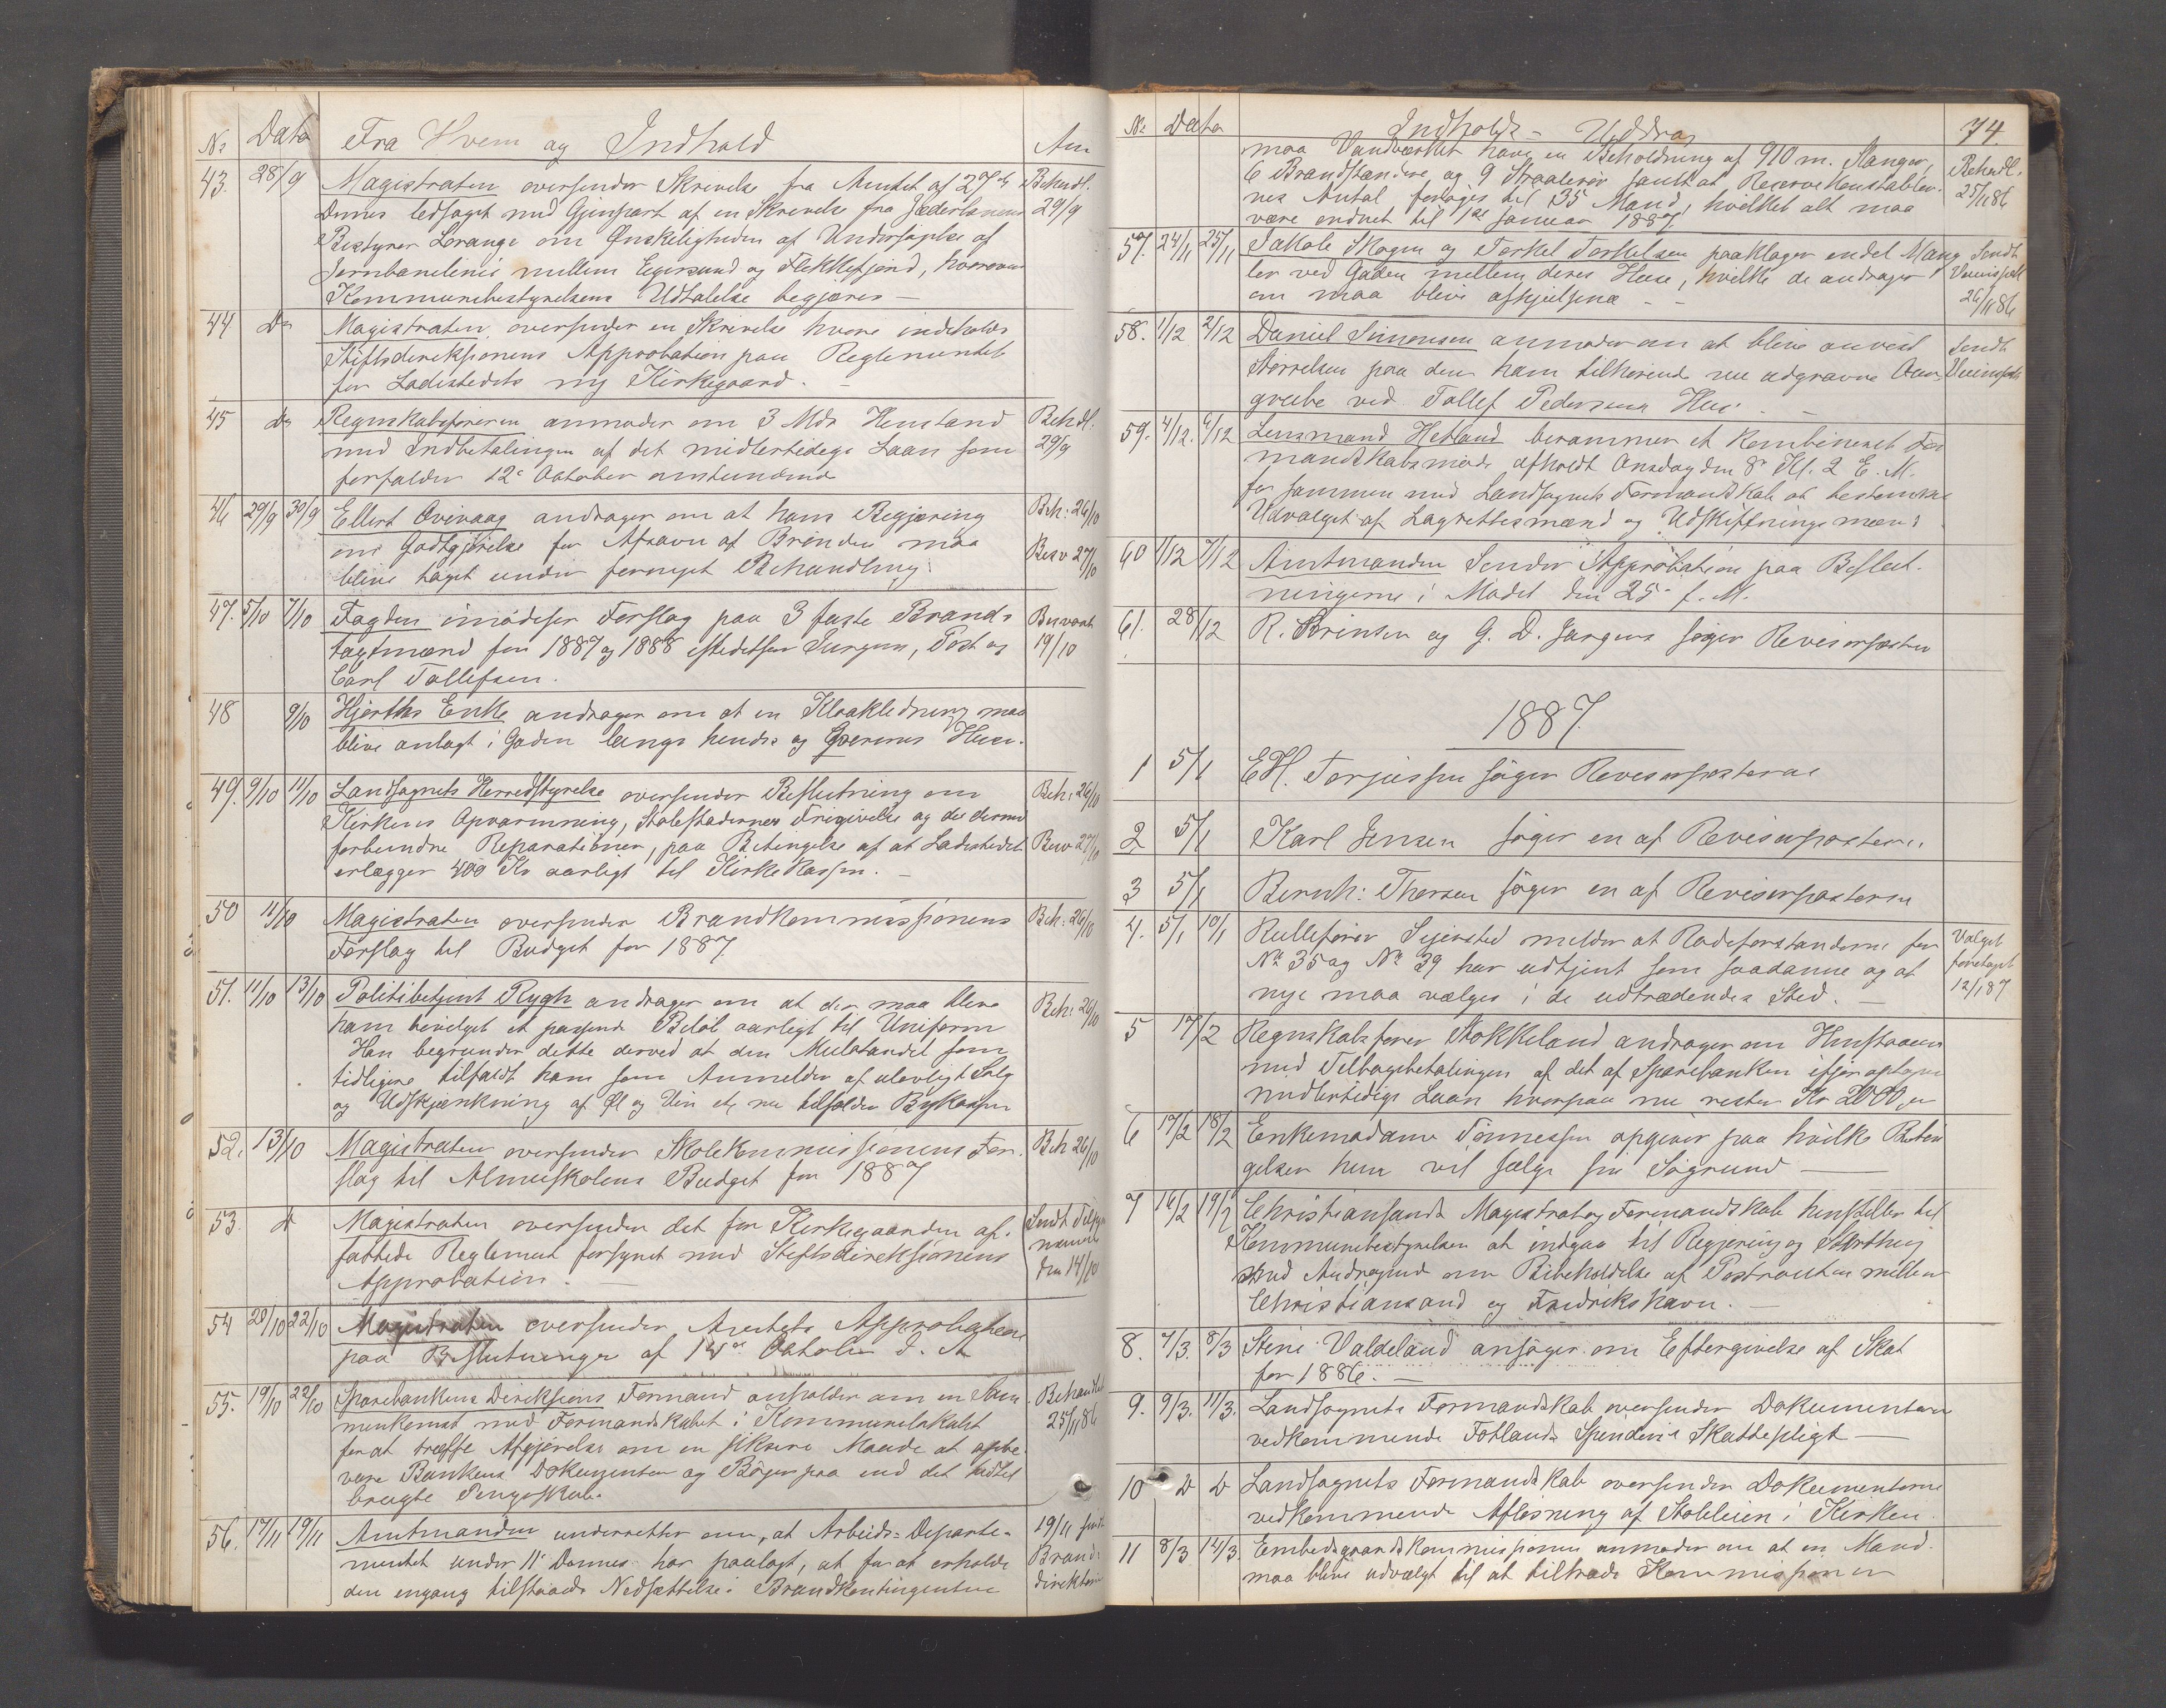 No Dato Fra Hvem og Indhold Anm
43. 28/9 Magistraten oversender Skrivelse fra Amtet af 27de Behndl.
Dennes ledsaget med Gjenpart af en Skrivelse fra Jæderbanens 29/9
Bestyrer Lorange om Ønskeligheden af Undersøgelse af
Jernbanelinie mellem Egersund og Flekkefjord, hvorom
Kommunebestyrelsens Udtalelse begjæres —
44 Do Magistraten oversender en Skrivelse hvori indeholdes
Stiftsdireksionens Approbation paa Reglementet
for Ladestedets ny Kirkegaard. —
45 Do Regnskabsføreren anmoder om 3 Mdr Henstand Behdl.
med Indbetalingen af det midlertidige Laan som 29/9
forfalder 12te Oktober anstundende
46 29/9 30/9 Ellert Ovevaag andrager om at hans Begjæring Beh: 26/10
om Godtgjørelse for Afsavn af Brønden maa Besv 27/10
blive taget under fornyet Behandling.
47. 5/10 7/10 Fogden imødeser Forslag paa 3 faste Brand- Besvaret
taxtmænd for 1887 og 1888 istedetfor Jurgens, Post og 19/10
Carl Tollefsen.
48 9/10 Hjorths Enke andrager om at en Kloakledning maa
blive anlagt i Gaden langs hendes og Gverens Huse.
49. 9/10 11/10 Landsognets Herredstyrelse oversender Beslutning om Beh: 26/10
Kirkens Opvarmning, Stolestadernes Frigivelse og de dermed
forbundne Reparationer, paa Betingelse af at Ladestedet Besv 27/10
erlægger 400 Kr aarligt til Kirkekassen. —
50 11/10 Magistraten oversender Brandkommissionens Beh: 26/10
Forslag til Budget for 1887.
51. 11/10 13/10 Politibetjent Rygh andrager om at der maa blive
ham bevilget et passende Beløb aarligt til Uniform Beh: 26/10
Han begrunder dette derved at den Mulctandel som
tidligere tilfaldt ham som Anmelder af ulovligt Salg
og Udskjænkning af Øl og Vin etc nu tilfalder Bykassen
52. 13/10 Magistraten oversender Skolekommissionens For- Beh 26/10
slag til Almueskolens Budget for 1887
53. Do Magistraten oversender det for Kirkegaarden af- Sendt Tilsyn
fattede Reglement forsynet med Stiftsdireksionens nævnde
Approbation. — den 14/10
54 20/10 22/10 Magistraten oversender Amtets Approbation
paa Beslutninger af 14de Oktober d. A
55. 19/10 22/10 Sparebankens Direksions Formand anholder om en Sam- Behandlet
menkomst med Formandskabet i Kommunelokalet 25/11 86
for at træffe Afgjørelse om en sikrere Maade at opbe-
vare Bankens Dokumenter og Bøger paa end det hidtil
brugte Pengeskab.
56. 17/11 19/11 Amtmanden underretter om, at Arbeids-Departe- 19/11 sendt
mentet under 11te Dennes har paalagt, at for at erholde Brand-
den engang tilstaaede Nedsættelse i Brandkontingenten direktør
No Dato Indholds- Uddrag 74.
maa Vandværket have en Beholdning af 910 m. Slanger, Behndl.
6 Brandstandere og 9 Straalerør samt at Reservekonstabler- 25/11 86
nes Antal forøges til 35 Mand, hvilket alt maa
være ordnet til 1ste Januar 1887.
57. 24/11 25/11 Jakob Skogen og Torkel Torkelsen paaklager endel Mang- Sendt
ler ved Gaden mellem deres Huse, hvilke de andrager Veiinspek
om maa blive afhjulpne — 26/11 86
58. 1/12 2/12 Daniel Simonsen anmoder om at blive anvist Sendt
Størrelsen paa den ham tilhørende nu udgravne Aam- Veiinspek
grube ved Tollef Pedersens Hus. —
59. 4/12. 6/12 Lensmand Hetland berammer et kombineret For
mandskabsmøde afholdt Onsdag den 8de Kl. 2 E. M.
for sammen med Landsognets Formandskab at bestemme
Udvalget af Lagrettesmænd og Udskiftningsmænd
60 1/12 7/12 Amtmanden Sender Approbation paa Beslut-
ningerne i Mødet den 25de f. M.
61. 28/12 R. Sørensen og G. D. Jørgens søger Revisorposten
1887.
1 5/1 E H. Torjussen søger Revisorposterne
2 5/1 Karl Jensen søger en af Revisorposterne
3 5/1 Bernh: Thorsen søger en af Revisorposterne
4. 5/1 10/1 Rullefører Sejersted melder at Rodeforstanderne for Valget
No 35 og No 39 har udtjent som saadanne og at foretaget
nye maa vælges i de udtrædendes Sted. — 12/1 87
5 17/2 Regnskabsfører Stokkeland andrager om Henstand
med Tilbagebetalingen af det af Sparebanken ifjor optagne
midlertidige Laan hvorpaa nu rester Kr 2000,00
6 17/2 18/2 Enkemadame Tønnessen opgiver paa hvilke Betin
gelser hun vil sælge sin Søgrund —
7 16/2 19/2 Christiansands Magistrat og Formandskab henstiller til
Kommunebestyrelsen at indgaa til Regjering og Storthing
med Andragend om Bibeholdelse af Postrouten mellem
Christiansand og Fredrikshavn. —
8. 7/3. 8/3 Stine Valdeland ansøger om Eftergivelse af Skat
for 1886. —
9. 9/3. 11/3. Landsognets Formandskab oversender Dokumenterne
vedkommende Fotlands Spinderis Skattepligt —
10 Do Do Landsognets Formandskab oversender Dokumenterne
vedkommende Afløsning af Stoleleien i Kirken.
11 8/3 12/3. Embedsgaardskommissionen anmoder om at en Mand
maa blive udvalgt til at tiltræde Kommissionen